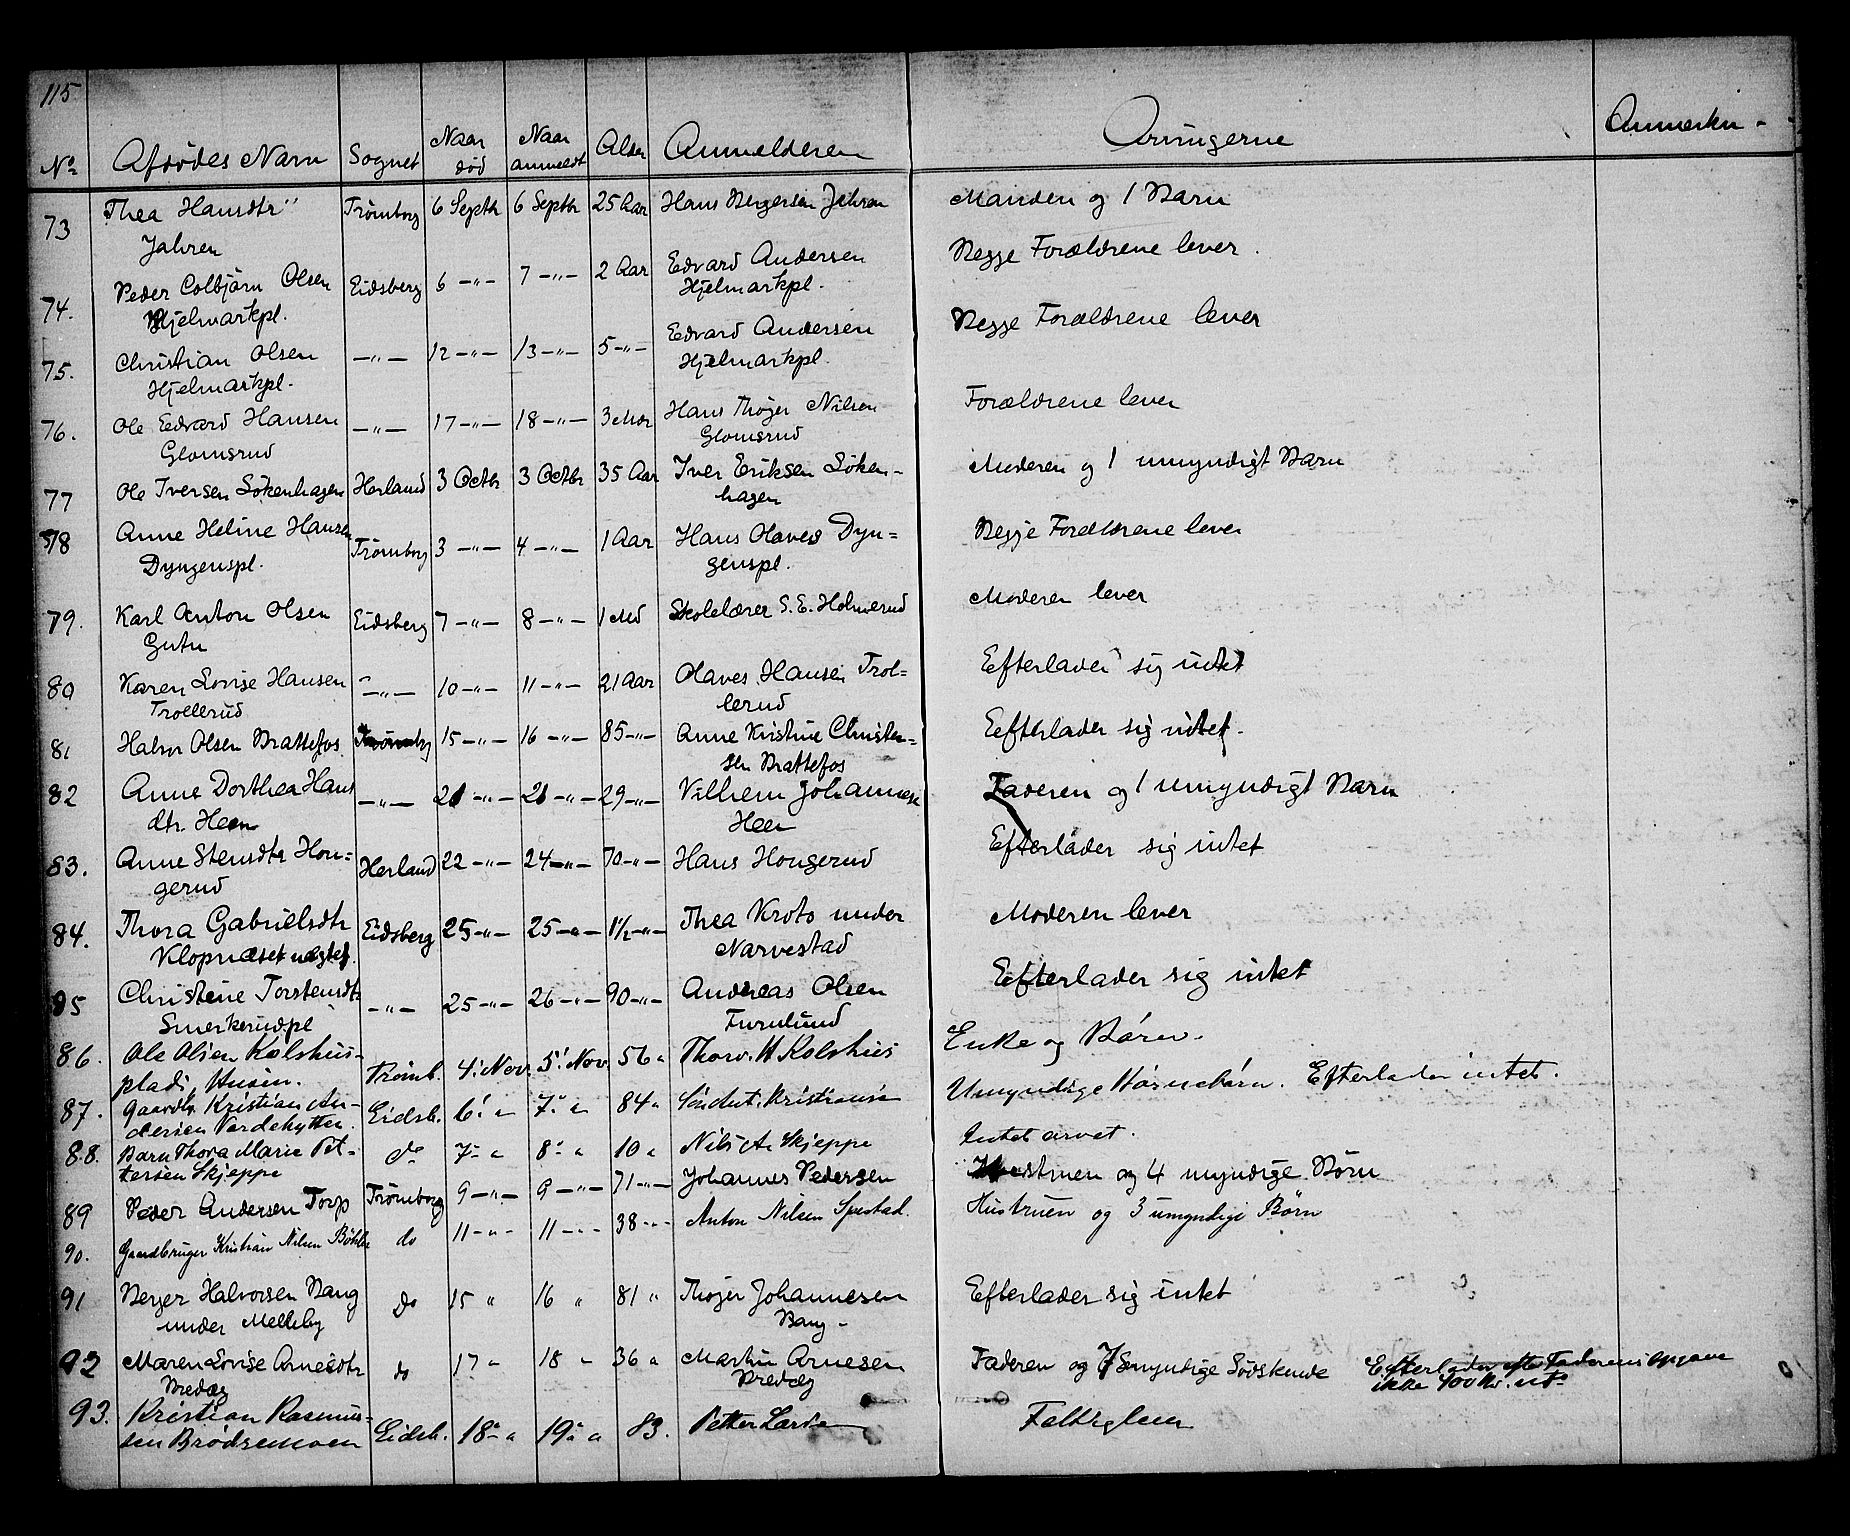 115
No Afdødes Navn Sognet Naar død Naar anmeldt Alder Anmelderen Arvingerne Anmerkn -
73 Thea Hansdtr Trømborg 6 Septbr 6 Septbr 25 Aar Hans Bergersen Jahren Manden og 1 Barn
Jahren
74. Peder Colbjørn Olsen Eidsberg 6 -"- 7 -"- 2 Aar Edvard Andersen Begge Forældrene lever.
Hjelmarkpl. Hjelmarkpl.
75. Christian Olsen -"- 12 -"- 13 -"- 5 -"- Edvard Andersen Begge Forældrene lever
Hjelmarkpl. Hjelmarkpl.
76. Ole Edvard Hansen -"- 17 -"- 18 -"- 3 Mdr Hans Thøger Nilsen Forældrene lever
Glomsrud Glomsrud
77 Ole Iversen Løkenhagen Herland 3 Octbr 3 Octbr 35 Aar Iver Eriksen Løken- Moderen og 1 umyndigt Barn
hagen
78 Anne Heline Hansen Trømborg 3 -"- 4 -"- 1 Aar Hans Olaves Dyn= Begge Forældrene lever
Dyngenspl. genspl.
79. Karl Anton Olsen Eidsberg 7 -"- 8 -"- 1 Md Skolelærer E. Holmerud Moderen lever
Gutu
80 Karen Lovise Hansen -"- 10 -"- 11 -"- 21 Aar Olaves Hansen Trol= Efterlader sig intet
Trollerud lerud
81 Halvor Olsen Brattefos Trømborg 15 -"- 16 -"- 85 -"- Anne Kristine Christen= Eefterlader sig intet.
sen Brattefos
82 Anne Dorthea Hans -"- 21 -"- 21 -"- 29 -"- Vilhem Johannese Faderen og 1 umyndigt Barn
dtr. Heen Heen
83. Anne Stensdtr Hon= Herland 22 -"- 24 -"- 70 -"- Hans Hongerud Efterlader sig intet
gerud
84. Thora Gabrielsdtr Eidsberg 25 -"- 25 -"- 1½ -"- Thea Kroto under Moderen lever
Klopnæset uægtef. Narvestad
85 Christene Torstensdtr -"- 25 -"- 26 -"- 90 -"- Andreas Olsen Eefterlader sig intet
Smerkerudpl Furulund
86. Ole Olsen Kolshus- Trømb. 4. Nov. 5. Nov. 56 " Thorv. H Kolshus Enke og Børn.
plads,
87. Gaardbr. Kristian An- Eidsb. 6. " 7. " 84 " Kristiansen Umyndige Børnebørn. Efterlader intet.
dersen
88. Barn Thora Marie Pet- do 7. " 8. " 10 " Nils A. Skjeppe Intet arvet.
tersen Skjeppe
89 Peder Andersen Torp Trømborg 9 -"- 9 -"- 71 -"- Johannes Pedersen Hustruen og 4 myndige Børn
90. Gaardbruger Kristian Nilsen Bøhler do 11 -"- 11 -"- 38 -"- Anton Nilsen Hustruen og 3 umyndige Børn
91 Berger Halvorsen Bang do 15 " 16 " 81 " Thøger Johannesen Efterlader sig intet
under Melleby Bang -
92 Maren Lovise Arnesdtr do 17 " 18 " 36 " Martin Arnesen Faderen og 7 Søskende Efterlader efter Faderens Opgave
Bredæg Bredæg ikke 400 Kr.
93. Kristian Rasmus= Eidsb. 18 " 19 " 83. Petter
sen Brødremoen